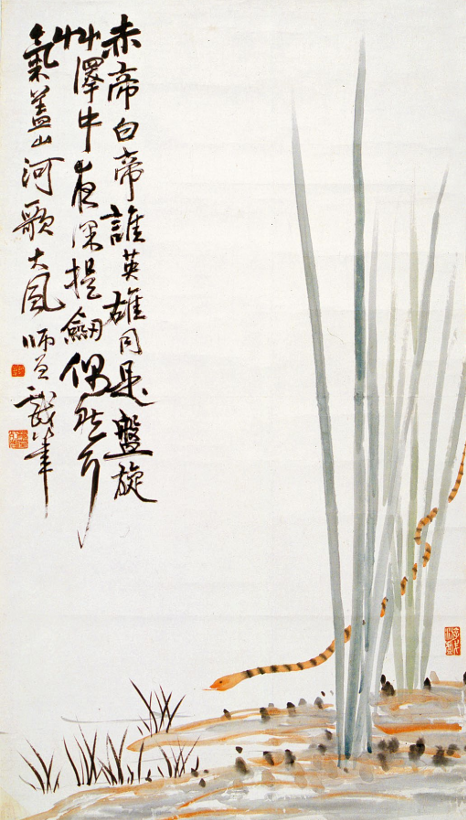 赤帝白帝誰英雄同是盤旋
艸澤中夜深提劒偶然耳
氣蓋山河歌大風 師曾戲筆